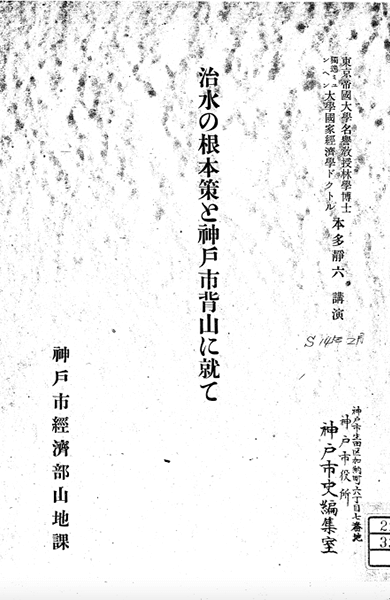 東京帝國大學名譽敎授林學博士
獨逸ミュンヘン大學國家經濟學ドクトル
本多靜六 講演
治水の根本策と神戸市背山に就て
神戸市經濟部山地課
S14年2月
神戸市生田区加納町六丁目七番地
神戸市役所
神戸市史編集室